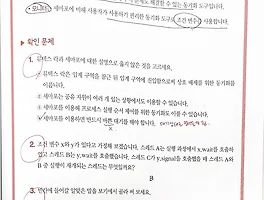 • 모니터: 세마포에 비해 사용자가 사용하기 편리한 동기화 도구로 조건 변수를 사용합니다.
▶ 확인 문제
1. 뮤텍스 락과 세마포에 대한 설명으로 옳지 않은 것을 고르세요.
① 뮤텍스 락은 임계 구역을 잠근 뒤 임계 구역에 진입함으로써 상호 배제를 위한 동기화를
이룹니다.
② 세마포는 공유 자원이 여러 개 있는 상황에서도 이용할 수 있습니다.
③ 세마포를 이용해 프로세스 실행 순서 제어를 위한 동기화도 이룰 수 있습니다.
④ 세마포를 이용하면 반드시 바쁜 대기를 해야 합니다.
2. 조건 변수 x와 y가 있다고 가정해 보겠습니다. 스레드 A는 실행 과정에서 x.wait를 호출하
였고 스레드 B는 y.wait를 호출했습니다. 스레드 C가 y.signal을 호출했을 때 스레드 A와
B 중 실행이 재개되는 스레드는 무엇일까요?
B
3. 빈칸에 들어갈 알맞은 말을 보기에서 골라 써 보세요.